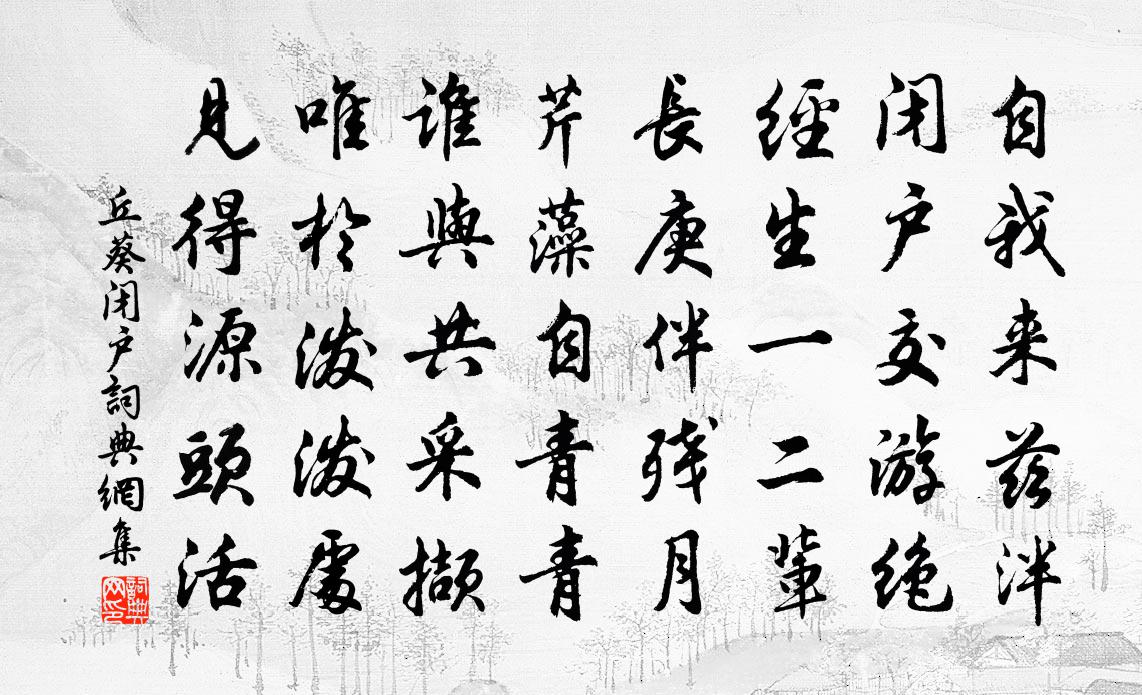 自我来茲泮
闭户交游绝
經生一二輩
長庚伴残月
芹藻自青青
谁與共采擷
唯於泼泼處
見得源頭活
丘葵闭户詞典網集